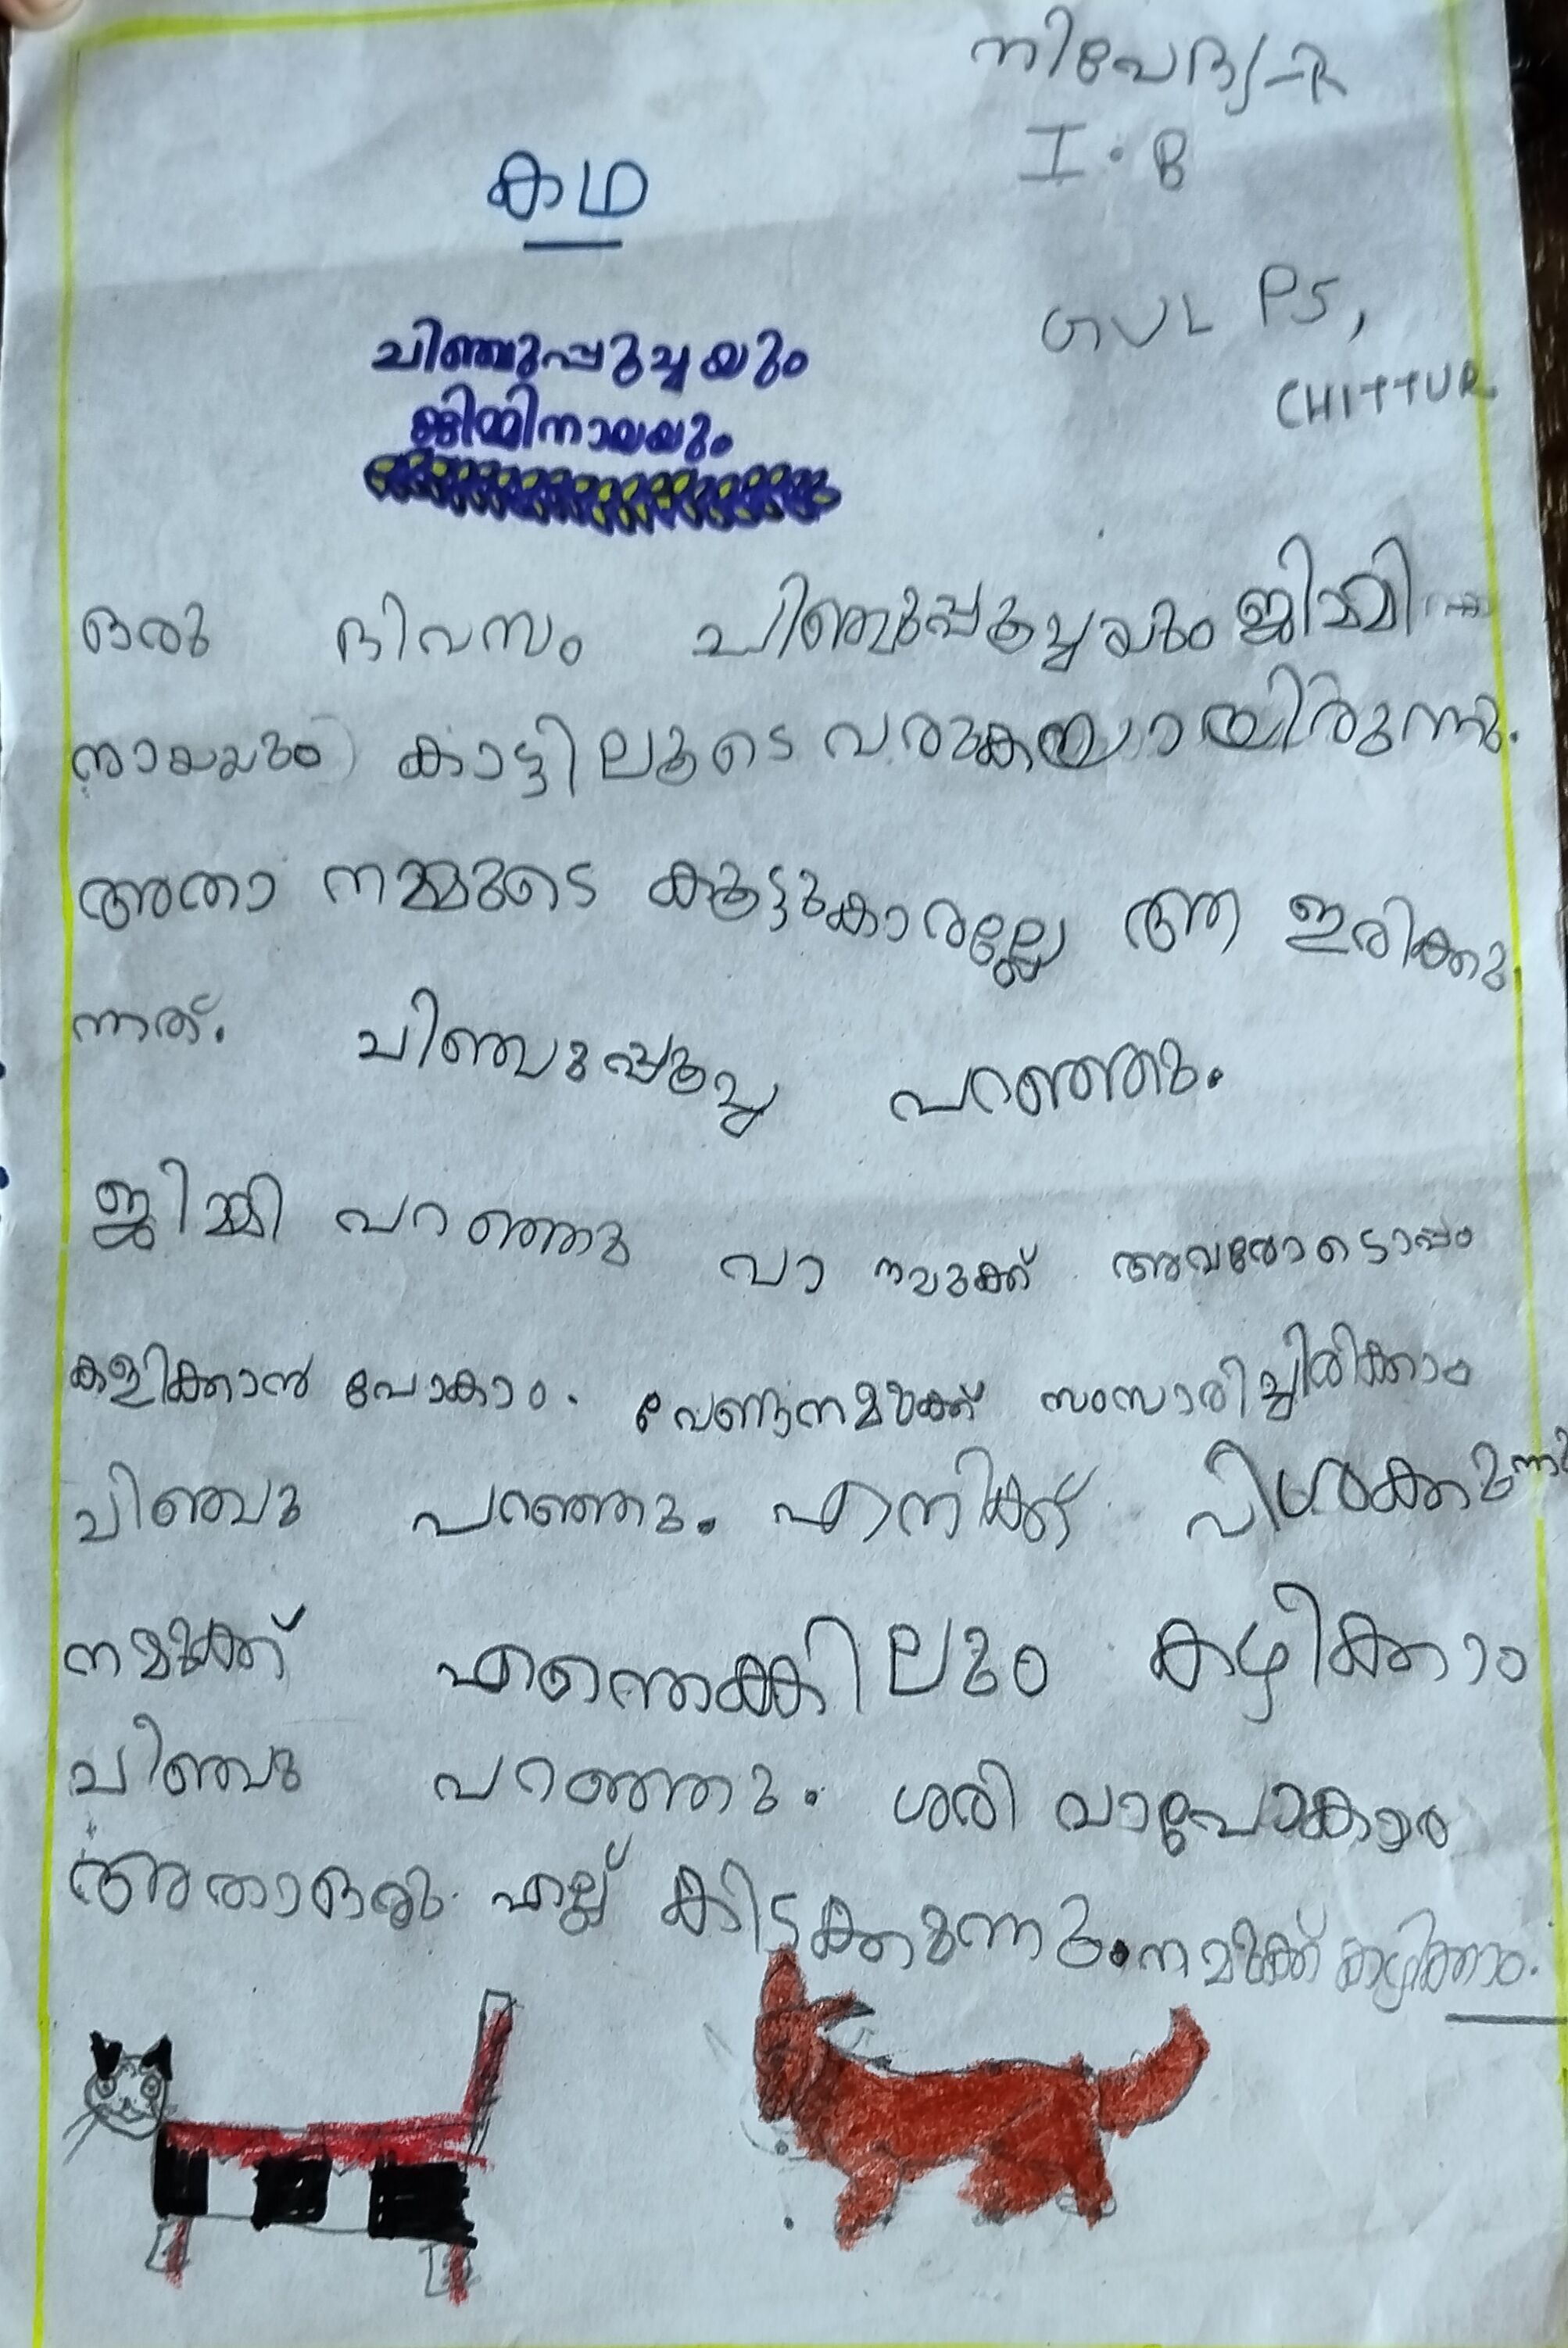 നിവേദ്യ-R
I.B
കഥ
GUL PS,
CHITTUR
ചിഞ്ചുപ്പൂച്ചയും
ജിമ്മിനായയും
ഒരു ദിവസം ചിഞ്ചുപ്പൂച്ചയും ജിമ്മി
നായയും കാട്ടിലൂടെ വരുകയായിരുന്നു.
അതാ നമ്മുടെ കൂട്ടുകാരല്ലേ ആ ഇരിക്കു
ന്നത്. ചിഞ്ചുപ്പൂച്ച പറഞ്ഞു.
ജിമ്മി പറഞ്ഞു വാ നമുക്ക് അവരോടൊപ്പം
കളിക്കാൻ പോകാം. വേണ്ടനമുക്ക് സംസാരിച്ചിരിക്കാം
ചിഞ്ചു പറഞ്ഞു. എനിക്ക് വിശക്കുന്നു
നമുക്ക് എന്തെങ്കിലും കഴിക്കാം
ചിഞ്ചു പറഞ്ഞു. ശരി വാപോകാം
അതാഒരു എല്ല് കിടക്കുന്നു.നമുക്ക് കഴിക്കാം.